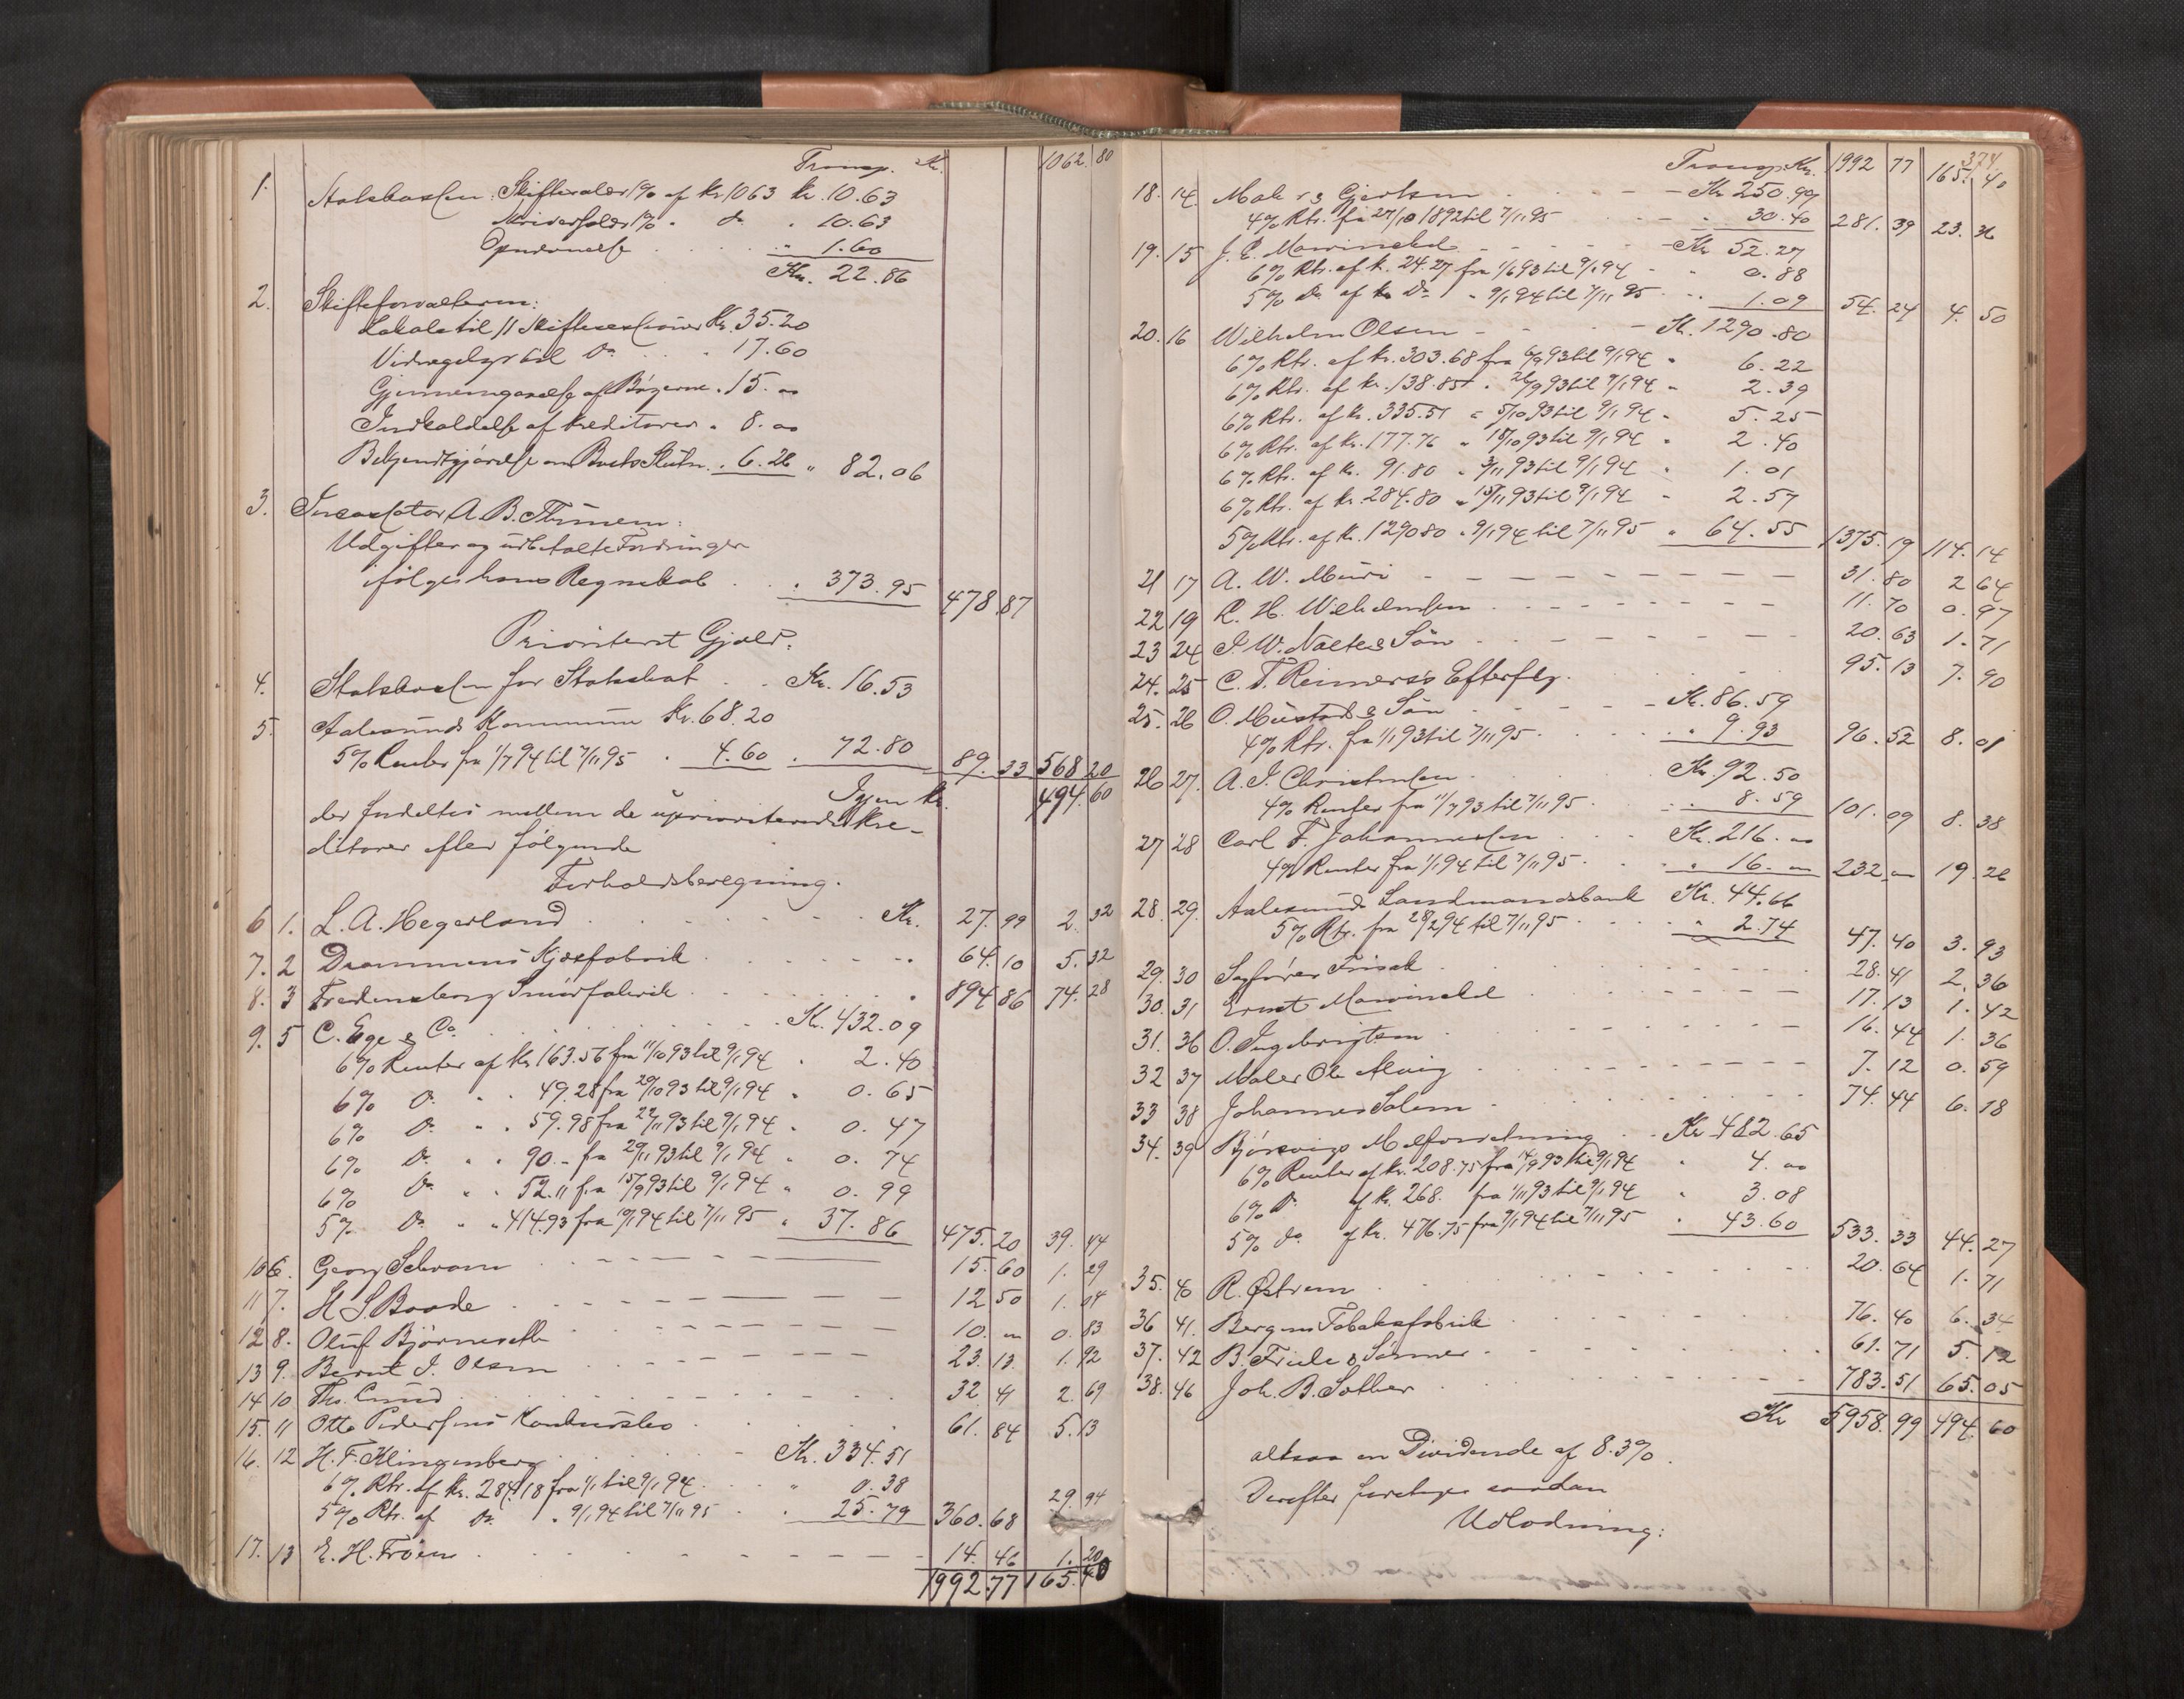 Transp. Kr. 1062.80
1. Statskassen: Skifteralder 1% af Kr. 1063 Kr. 10.63
Skriversalder 1% " Do " 10.63
1.60
Kr. 22.86
2. Skifteforvalteren:
Lokale til 11 Skiftesessioner Kr. 35.20
Vidnegebyr til Do . . " 17.60
Gjennemgaaelse af Bøgerne " 15. oo
Indkaldelse af Kreditorer " 8. oo
Bekjendtgjørelse om Boets Slutn. " 6.26 " 82.06
3. Incassator A. B. Thinem:
Udgifter og udbetalte Fordringer
ifølge hans Regnskab . . " 373.95 478.87
Prioriteret Gjæld:
4. Statskassen for Statsskat . . Kr. 16.53
5. Aalesunds Kommune Kr. 68.20
5% Renter fra 1/7 94 til 7/11 95 " 4.60 " 72.80 89.33 568.20
Igjen Kr. 494.60
der fordeles mellem de uprioriterede Kre-
ditorer efter følgende
Forholdsberegning.
6 1. L. A. Hegerland . . . Kr. 27.99 2.32
7. 2 Drammens Kjæxfabrik . . . " 64.10 5.32
8. 3 Fredensborg Smørfabrik . . . " 894.86 74.28
9. 5 C. Ege & Co . . . Kr. 432.09
6% Renter af Kr. 163.56 fra 11/10 93 til 9/1 94 " 2.40
6% Do " " 49.28 fra 20/10 93 til 9/1 94 " 0.65
6% Do " " 59.98 fra 22/11 93 til 9/1 94 " 0.47
6% Do " " 90.- fra 20/11 93 til 9/1 94 " 0.74
6% Do " " 52.11 fra 15/9 93 til 9/1 94 " 0.99
5% Do " " 414.93 fra 10/1 94 til 7/11 95 " 37.86 475.20 39.44
10 6. Georg Schram 15.60 1.29
11 7. H S Baade 12.50 1.04
12 8. Oluf Bjørneseth 10. oo 0.83
13 9. Bernt I. Olsen 23.13 1.92
14 10 Ths. Lund 32.41 2.69
15. 11 Otto Pedersens Konkursbo 61.84 5.13
16. 12 H. F. Klingenberg . . . Kr. 334.51
6% Rtr. af Kr. 284.18 fra 1/1 til 9/1 94 . . . " 0.38
5% Rtr. af Do " 9/1 94 til 7/11 95 . . " 25.79 360.68 29.94
17. 13 E. H. Frøen 14.46 1.20
1992.77 165.40
374
Transp. Kr. 1992 77 165.40
18. 14. & Gjertsen . . . Kr. 250.99
4% Rtr. fra 27/10 1892 til 7/11 95 . . . " 30.40 281.39 23.36
19. 15 J. E. Mowinckel . . . Kr. 52.27
6% Rtr. af Kr. 24.27 fra 1/6 93 til 9/1 94 " 0.88
5% Do af Kr Do " 9/1 94 til 7/11 95 " 1.09 54.24 4.50
20. 16 Wilhelm Olsen . . . Kr. 1290.80
6% Rtr. af Kr. 303.68 fra 6/9 93 til 9/1 94 " 6.22
6% Rtr. af Kr. 138.85 " 26/9 93 til 9/1 94 " 2.39
6% Rtr. af Kr. 335.51 " 5/10 93 til 9/1 94 " 5.25
6% Rtr. af Kr. 177.76 " 15/10 93 til 9/1 94 " 2.40
6% Rtr. af Kr. 91.80 " 3/11 93 til 9/1 94 " 1.01
6% Rtr. af Kr. 284.80 " 15/11 93 til 9/1 94 " 2.57
5% Rtr. af Kr. 1290 80 " 9/1 94 til 7/11 95 " 64.55 1375.19 114.14
21 17 A. W. Muri 31.80 2.64
22 19 C. H. Wilhelmsen 11.70 0.97
23 24 I. W. Næte & Søn 20.63 1.71
24. 25 C. T. Reimers's Efterflg. 95.13 7.90
25. 26 O. Mustad & Søn . . . Kr. 86.59
4% Rtr. fra 1/1 93 til 7/11 95 . . . " 9.93 96.52 8.01
26 27. A. I. Christensen . . . Kr. 92.50
4% Renter fra 11/7 93 til 7/11 95 . . . " 8.59 101.09 8.38
27 28 Carl F. Johannessen . . . Kr. 216. oo
4% Renter fra 1/1 94 til 7/11 95 . . . " 16. oo 232. oo 19.26
28. 29. Aalesunds Landmandsbank Kr. 44.66
5% Rtr. fra 28/2 94 til 7/11 95 . . . " 2.74 47.40 3.93
29. 30 Sagfører Frisak 28.41 2.36
30. 31 Ernst Mowinckel 17.13 1.42
31. 36 O. Ingebrigtsen 16.44 1.36
32 37 Maler Ole Alvig 7.12 0.59
33 38 Johannes Solem 74.44 6.18
34. 39 Bjørsvigs Melforretning . . Kr. 482.65
6% Renter af Kr. 208.75 fra 14/9 93 til 9/1 94 " 4. oo
6% Do af Kr. 268. fra 1/11 93 til 9/1 94 " 3.08
5% Do af Kr. 476.75 fra 9/1 94 til 7/11 95 " 43.60 533.33 44.27
35. 40 R. Østrem 20.64 1.71
36 41. Bergens Tobaksfabrik 76.40 6.34
37. 42 B. Friele & Sønner 61.71 5.12
38. 46 Joh. B. Solber 783.51 65.05
Kr 5958.99 494.60
altsaa en Dividende af 8.3%.
Derefter foretages saadan
Udlodning: